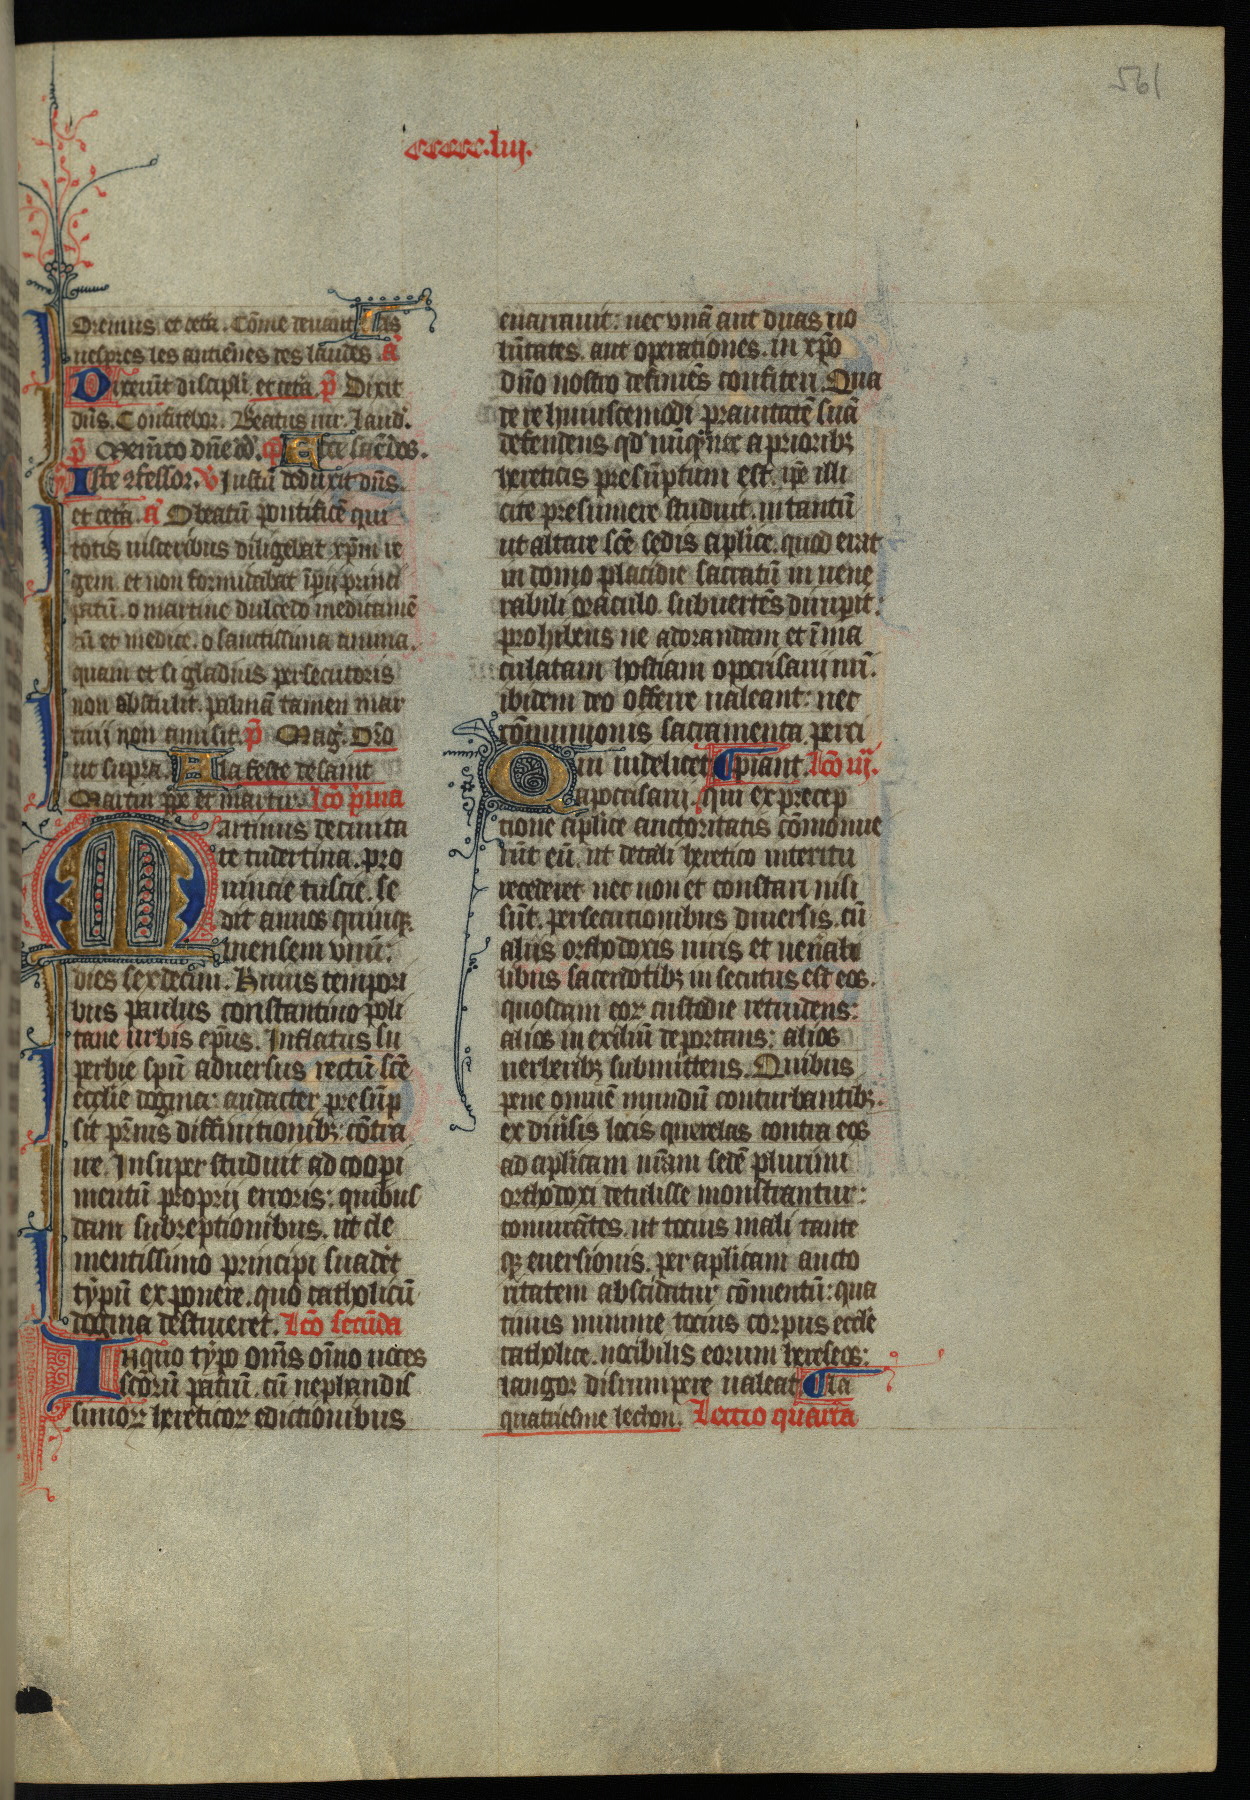 561
ccccc.liij.
Oremus. et ceta. Cōme deuant. As
uespres les antienes des laudes. a͂
Dixerūt discipli et ceta. p͂. Dixit
dn̄s. Confitebor. Beatus uir. Laud'.
p͂. Memēto dn̄e dd'. Ecce sac̄dos.
Iste 9fessor. v. Iustū deduxit dn̄s.
et ceta. a͂. O beatū pontificē qui
totis uisceribus diligebat xp̄m re
gem. et non formidabat īpij princi
patū. o martine dulcedo medicamē
tū et medice. o sanctissima anima.
quam et si gladius persecutoris
non abstulit. palmā tamen mar
tirij non amisit. p͂. Mag'. Oro
ut supra. A la feste de saint
Martin pp̄e et martir. lc̄o p̄ma
Martinus de ciuita
te tudertina. pro
uincie tuscie. se
dit annos quinq;
mensem vnū:
dies sexdecim. Huius tempori
bus paulus constantino poli
tane urbis ep̄us. Inflatus su
perbie spū aduersus rectū scē
ecclie dogma: audacter presūp
sit p̄mis diffinitionib; cōtra
ire. Insuper studuit ad coopi
mentū proprij erroris: quibus
dam subreptionibus. ut cle
mentissimo principi suadēt
typū exponere. quo catholicū
dogma destrueret. lc̄o secūda
In quo typo om̄s oīno uoces
scōrū patrū. cū nephandis
simor hereticor edictionibus
enarrauit: nec vnā aut duas uo
lūtates. aut operationes. in xp̄o
dn̄o nostro definiēs confiteri. Qua
re re huiuscemodi prauitatē suā
defendens qd' nūq; nec a priorib;
hereticis presūptum est. ip̄e illi
cite presumere studuit. in tantū
ut altare scē sedis ap̄lice. quod erat
in domo placidie sacratū in uene
rabili oraculo. subuertēs dirupit:
prohibens ne adorandam et īma
culatam hostiam apocrisarij nr̄i.
ibidem deo offerre ualeant: nec
cōmunionis sacramenta. perci
piant. lc̄o iij.
Qui uidelicet
apocrisarij. qui ex precep
tione ap̄lice auctoritatis cōmonue
rūt eū. ut de tali heretico interitu
recederet. nec non et constari nisi
sūt. persecutionibus diuersis. cū
alijs orthodoxis uiris et uen̄abi
libus sacerdotib; insecutus est eos.
quosdam eor custodie retrudens:
alios in exiliū deportans: alios
uerberib; submittens. Quibus
pene omnē mundū conturbantib;.
ex diu̓sis locis querelas contra eos
ad ap̄licam nr̄am sedē plurimi
orthodoxi detulisse monstrantur:
coniurātes. ut tocius mali tante
q; euersionis. per ap̄licam aucto
ritatem abscidatur cōmentū: qua
tinus minime tocius corpus eccl̄e
catholice. nocibilis eorum hereseos:
langor disrumpere ualeat. A la
quatriesme lechon. Lectio quarta